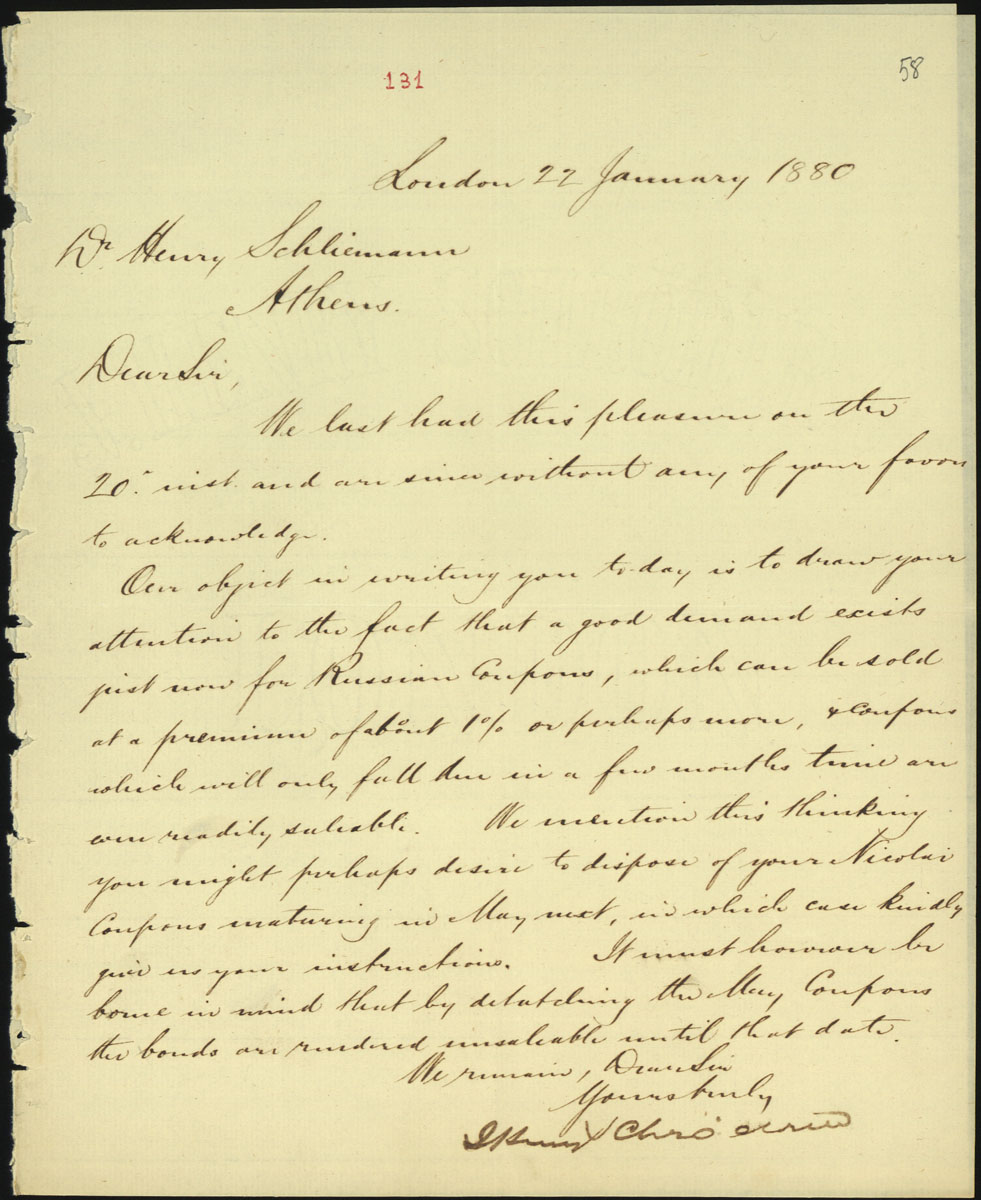 131
58
London 22 January 1880
Dr. Henry Schliemann
Athens.
Dear Sir,
We last had this pleasure on the
20. inst. and are since without any of your favors
to acknowledge.
Our object in writing you to-day is to draw your
attention to the fact that a good demand exists
just now for Russian Coupons, which can be sold
at a premium of about 1% or perhaps more, & Coupons
which will only fall due in a few months time are
even readily saleable. We mention this thinking
you might perhaps desire to dispose of your Nicolai
Coupons maturing in May next, in which case kindly
give us your instructions. It must however be
borne in mind that by detatching the May Coupons
the bonds are rendered unsaleable until that date.
We remain, Dear Sir
Yours truly